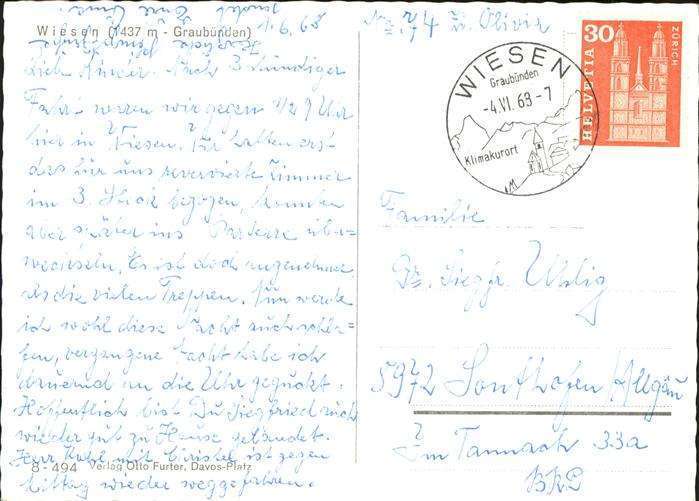 Wiesen (1437 m - Graubünden)
1.6.68
Nach 3 stündiger
Fahrt waren wir gegen 1/2 9 Uhr
hier in Wiesen. Wir hatten erst
das für uns reservierte Zimmer
im 3. Stock bezogen, konnten
aber später ins Parterre über=
wechseln. Es ist doch angenehmer
als die vielen Treppen. Nun werde
ich wohl diese Nacht auch schla=
fen, vergangene Nacht habe ich
dauernd an die Uhr geguckt.
Hoffentlich bist Du Siegfried auch
wieder gut zu Hause gelandet.
Herr mit Christel ist gegen
Mittag wieder weggefahren.
8-494 Verlag Otto Furter, Davos-Platz
WIESEN
Graubünden
-4.VI.68-7
Klimakurort
30
HELVETIA
ZÜRICH
Familie
Siegfr. Uhlig
5972 Sonthofen/Allgäu
Im Tannach 33a
BRD